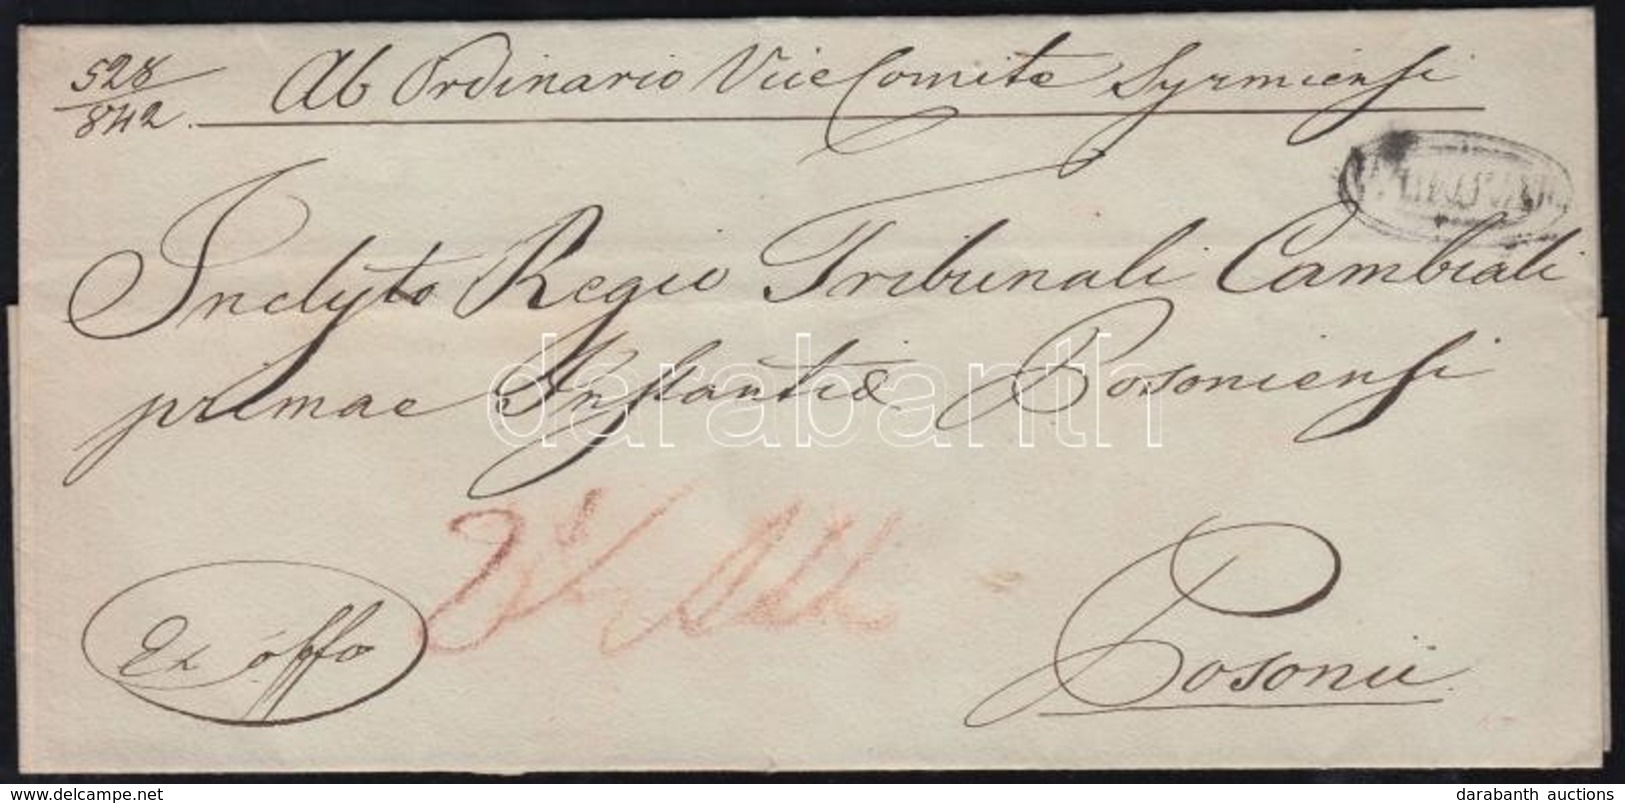 528/842. Ab Ordinario Vice Comite Syrmiensi
Inclyto Regio Tribunali Cambiali
primae Instantiae Posoniensi
darabanth
Ex offo
Posonii
www.delcampe.net
darabanth auctions